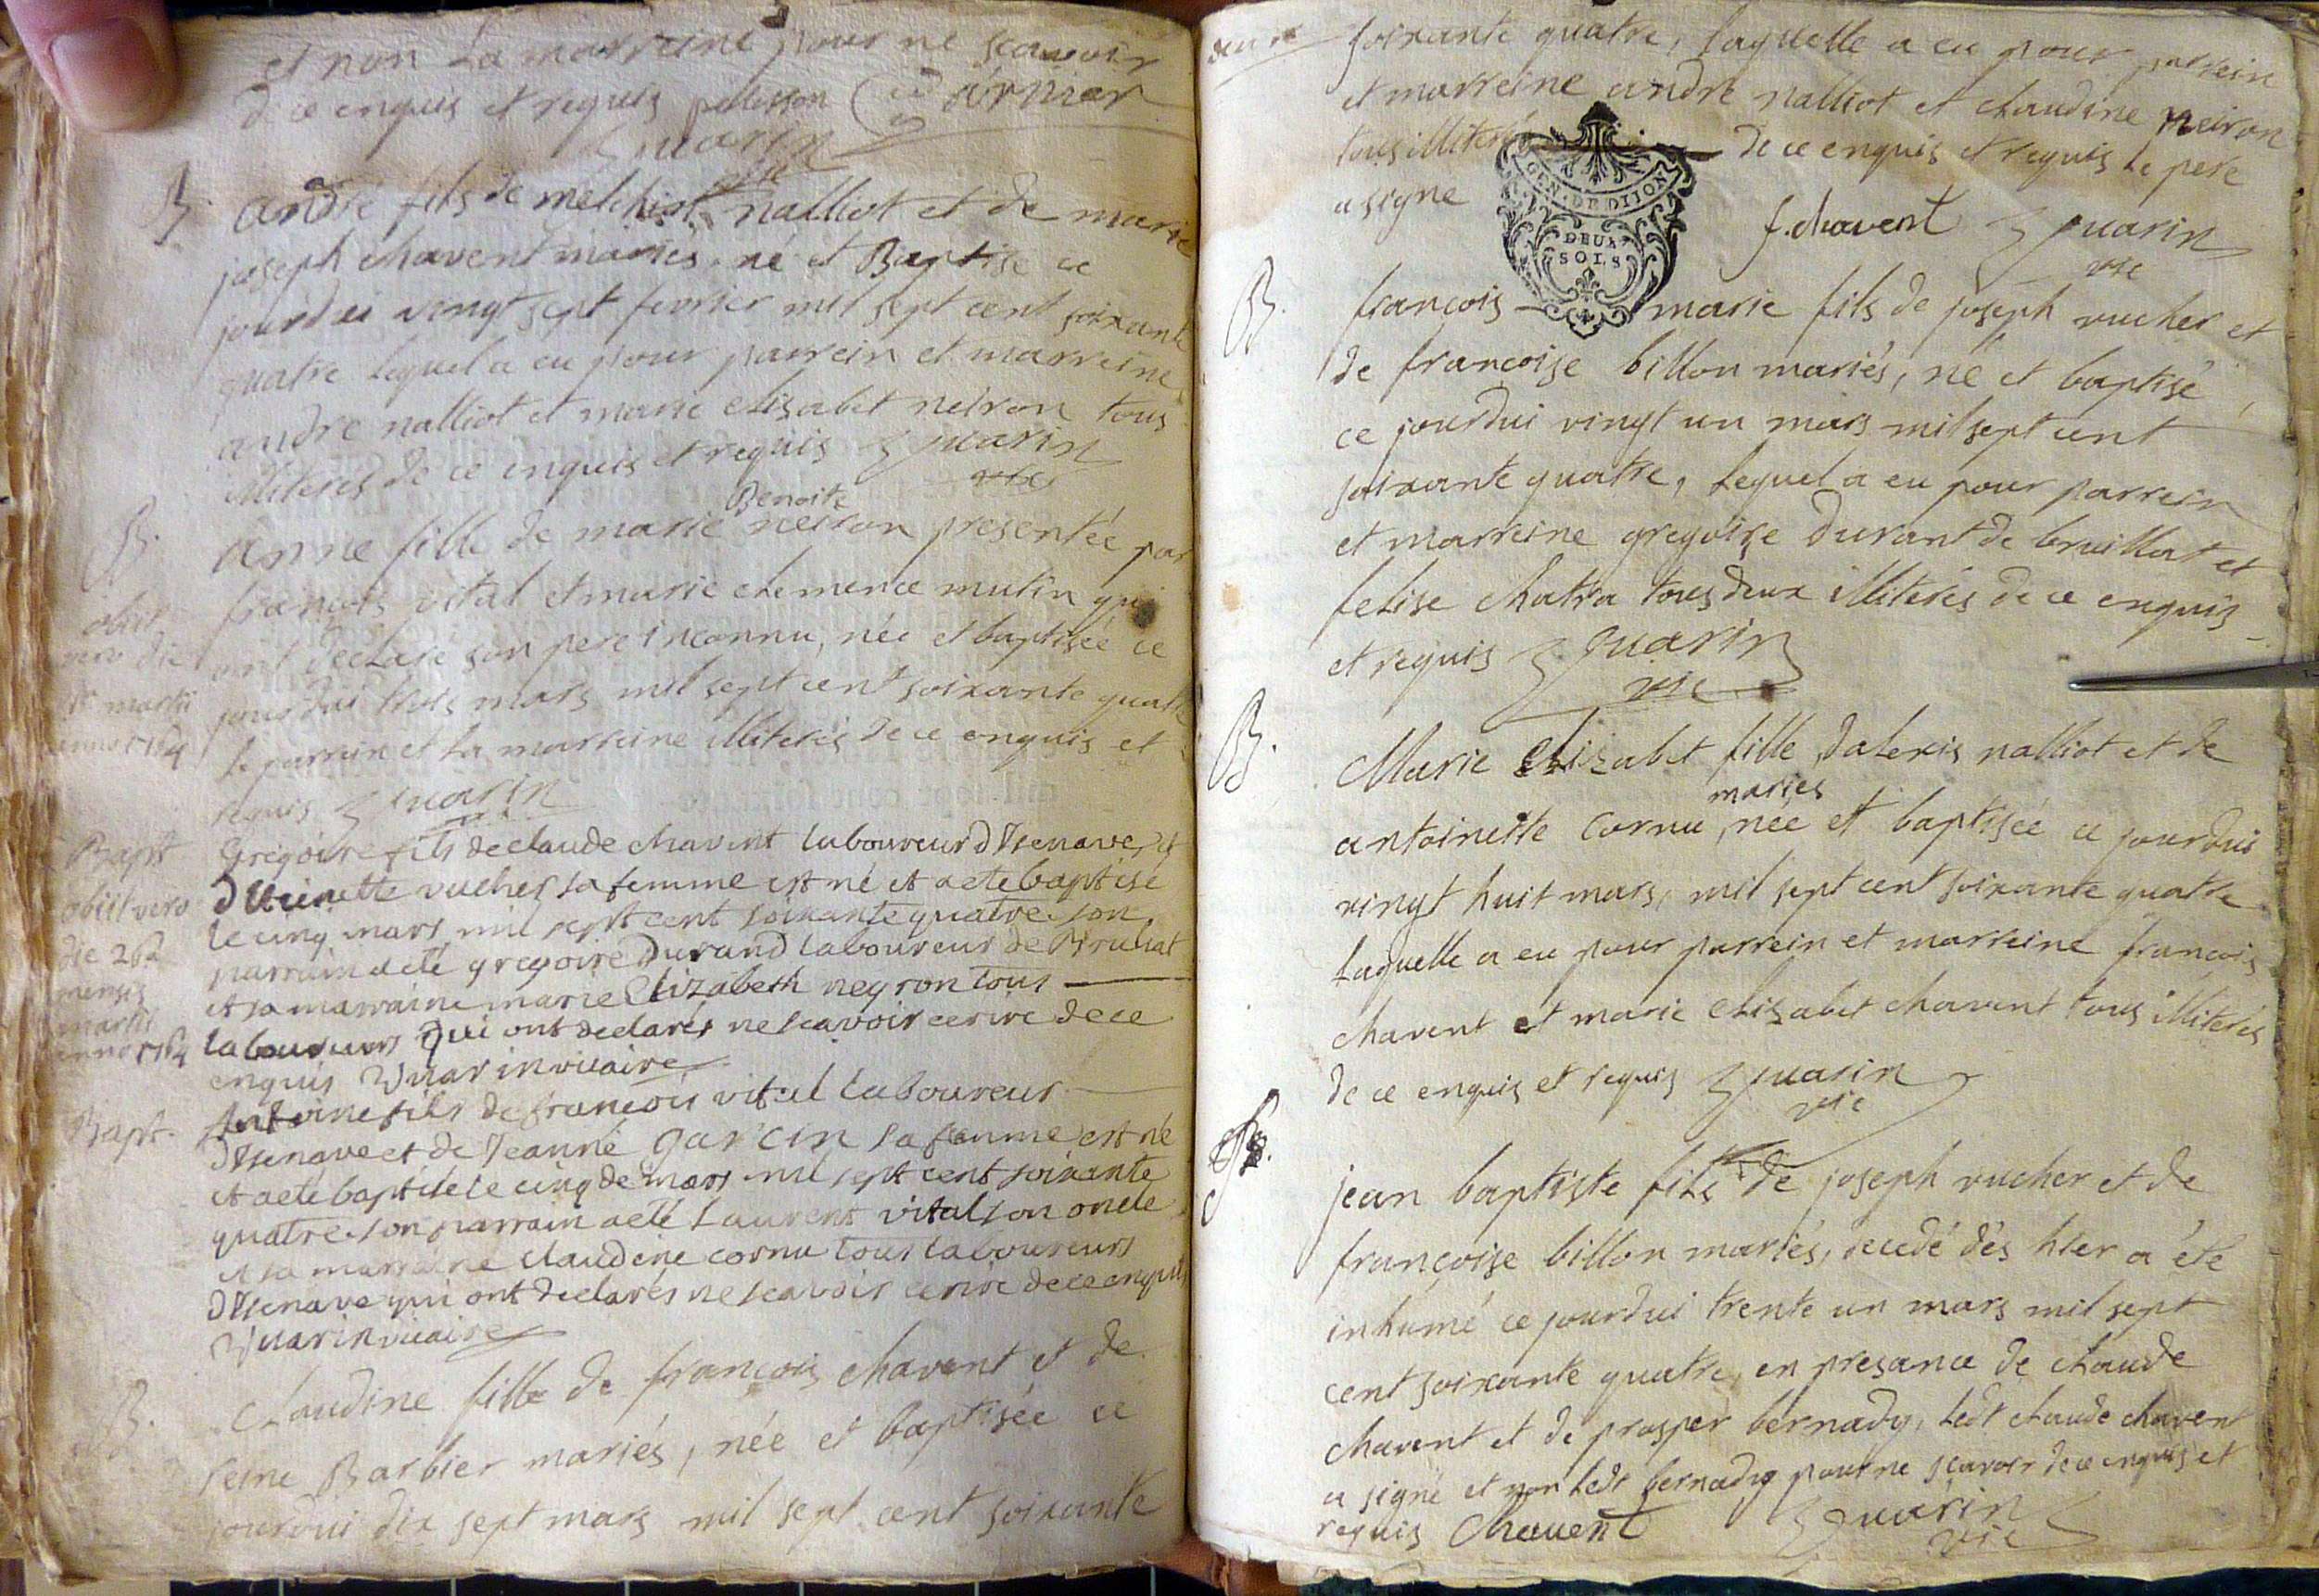 et non la marreine pour ne scavoir
de ce enquis et requis pelisson Garnier
Juarin
vic
B. andré fils de melchiot nalliot et de marie
joseph chavent mariés, né et Baptisé ce
jourdui vingt sept fevrier mil sept cent soixante
quatre lequel a eu pour parrein et marreine
andre nalliot et marie elisabet neiron tous
illiterés de ce enquis et requis Juarin
vic
Benoite
B. anne fille de marie neiron presentée par
francois vital et marie clemence mutin qui
obiit
vero die
martii
anno 1764
ont declaré son pere inconnu, née et baptisée ce
jourdui trois mars mil sept cent soixante quatre
le parrein et la marreine illiterés de ce enquis et
requis Juarin
Bapt
obiit vero
die 26a
mensis
martii
anno 1764
Gregoire fils de claude chavent laboureur d'Isenave et
d' vucher sa femme est né et a eté baptisé
le cinq mars mil sept cent soixante quatre. son
parrain a eté gregoire Durand laboureur de Bruliat
et sa marraine marie Elizabeth neyron tous
laboureurs qui ont declarés ne scavoir ecrire de ce
enquis Juarin vicaire
Bapt. Antoine fils de francois vital laboureur
d'Isenave et de Jeanne garcin sa femme est né
et a eté baptisé le cinq de mars mil sept cent soixante
quatre. son parrain a eté Laurent vital son oncle
et sa marraine claudine cornu tous laboureurs
d'Isenave qui ont declarés ne scavoir ecrire de ce enquis
Juarin vicaire
B. claudine fille de francois chavent et de
reine Barbier mariés, née et baptisée ce
jourdui dix sept mars mil sept cent soixante
deux
soixante quatre, laquelle a eu pour parrein
et marreine andré nalliot et claudine neiron
tous illiterés de ce enquis et requis le pere
a signe
GEN. DE DIJON
DEUX
SOLS
f. chavent Juarin
vic
B. francois marie fils de joseph vucher et
de francoise billon mariés, né et baptisé
ce jourdui vingt un mars mil sept cent
soixante quatre, lequel a eu pour parrein
et marreine gregoire durant de bruillat et
felise chatra tous deux illiterés de ce enquis
et requis Juarin
vic
B. Marie Elisabet fille d'alexis nalliot et de
mariés
antoinette cornu, née et baptisée ce jourdui
vingt huit mars, mil sept cent soixante quatre
laquelle a eu pour parrein et marreine francois
chavent et marie elisabet chavent tous illiterés
de ce enquis et requis Juarin
vic
jean baptiste fils de joseph vucher et de
françoise billon mariés, decedé dès hier a été
inhumé ce jourdui trente un mars mil sept
cent soixante quatre, en presance de claude
chavent et de prosper bernady, ledt claude chavent
a signé et non ledt bernady pour ne scavoir de ce enquis et
requis Chavent Juarin
vic